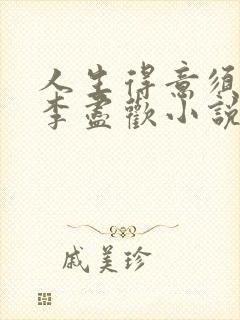 人生得意須
李盡歡小說
戚美珍